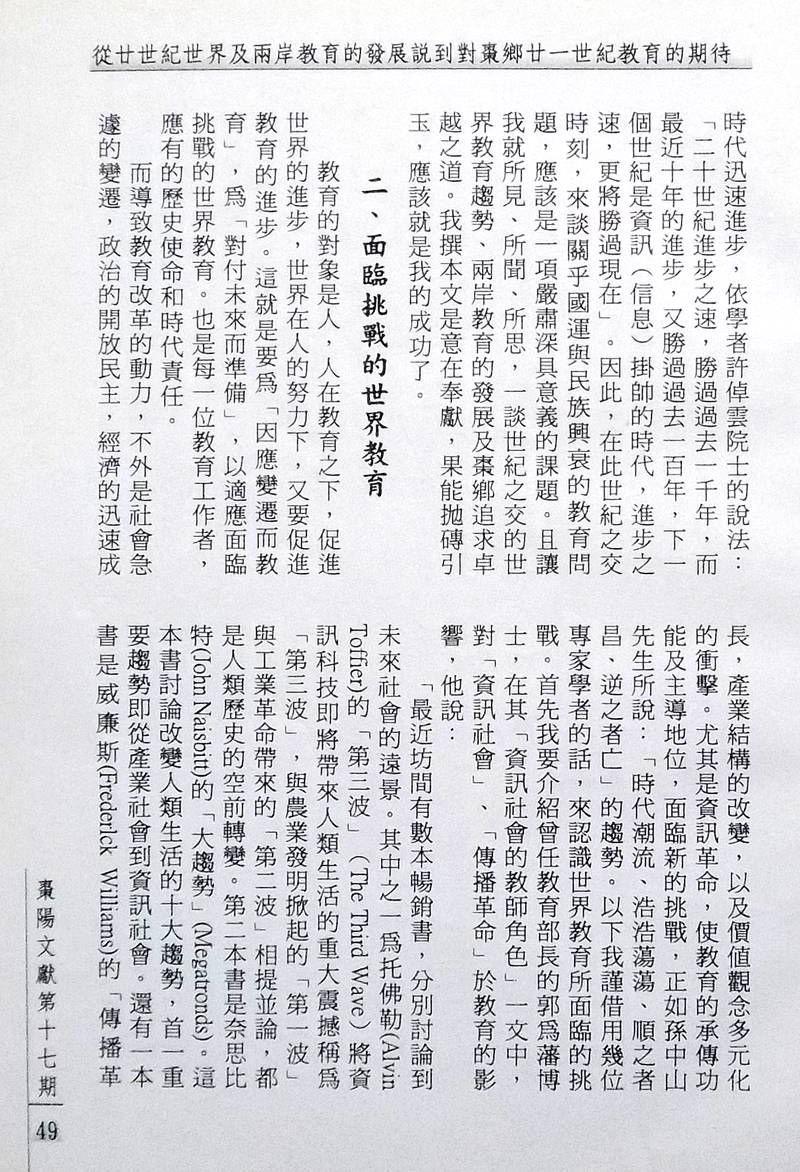 從廿世紀世界及兩岸教育的發展説到對棗鄉廿一世紀教育的期待
時代迅速進步，依學者許倬雲院士的說法：
「二十世紀進步之速，勝過過去一千年，而
最近十年的進步，又勝過過去一百年，下一
個世紀是資訊（信息）掛帥的時代，進步之
速，更將勝過現在」。因此，在此世紀之交
時刻，來談關乎國運與民族興衰的教育問
題，應該是一項嚴肅深具意義的課題。且讓
我就所見、所聞、所思，一談世紀之交的世
界教育趨勢、兩岸教育的發展及棗鄉追求卓
越之道。我撰本文是意在奉獻，果能拋磚引
玉，應該就是我的成功了。
二、面臨挑戰的世界教育
教育的對象是人，人在教育之下，促進
世界的進步，世界在人的努力下，又要促進
教育的進步。這就是要爲「因應變遷而教
育」，爲「對付未來而準備」，以適應面臨
挑戰的世界教育。也是每一位教育工作者，
應有的歷史使命和時代責任。
而導致教育改革的動力，不外是社會急
遽的變遷，政治的開放民主，經濟的迅速成
長，產業結構的改變，以及價値觀念多元化
的衝擊。尤其是資訊革命，使教育的承傳功
能及主導地位，面臨新的挑戰，正如孫中山
先生所說：「時代潮流、浩浩蕩蕩、順之者
昌、逆之者亡」的趨勢。以下我謹借用幾位
專家學者的話，來認識世界教育所面臨的挑
戰。首先我要介紹曾任教育部長的郭爲藩博
士，在其「資訊社會的教師角色」一文中，
對「資訊社會」、「傳播革命」於教育的影
響，他說：
「最近坊間有數本暢銷書，分別討論到
未來社會的遠景。其中之一爲托佛勒(Alvin
Toffier)的「第三波」（The Third Wave）將資
訊科技即將帶來人類生活的重大震撼稱爲
「第三波」，與農業發明掀起的「第一波」
與工業革命帶來的「第二波」相提並論，都
是人類歷史的空前轉變。第二本書是奈思比
特(John Naisbitt)的「大趨勢」(Megatronds)。這
本書討論改變人類生活的十大趨勢，首一重
要趨勢即從產業社會到資訊社會。還有一本
書是威廉斯(Frederlck Williams)的「傳播革
棗陽文獻第十七期
49